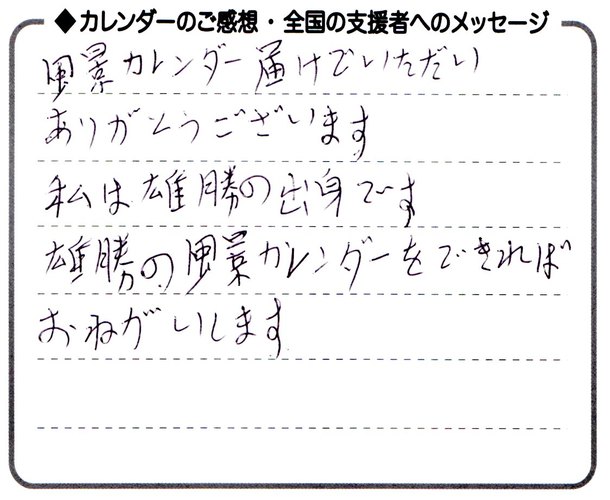 ◆カレンダーのご感想・全国の支援者へのメッセージ
風景カレンダー届けでいただい
ありがとうございます
私は雄勝の出身です
雄勝の風景カレンダーをできれば
おねがいします